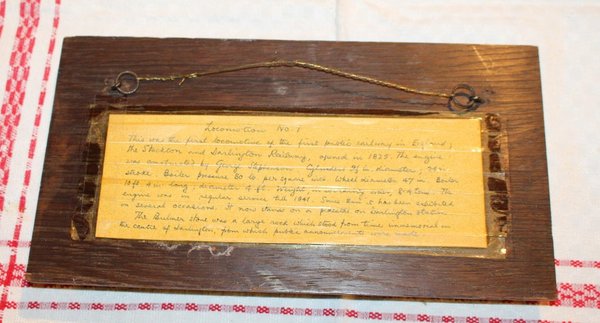 Locomotion No. 1
This was the first locomotive of the first public railway in England;
the Stockton and Darlington Railway, opened in 1825. The engine
was constructed by George Stephenson. Cylinders 9½ in. diameter, 24 in
stroke. Boiler pressure 50 lb per square inch. Wheel diameter 47 in. Boiler
10 ft. 4 in. long, diameter 4 ft. Weight, in working order, 8.4 tons. The
engine was in regular service till 1841. Since then it has been exhibited
on several occasions. It now stands on a pedestal on Darlington station
The Bulmer stone was a large rock which stood from time immemorial in
the centre of Darlington, from which public announcements were made.